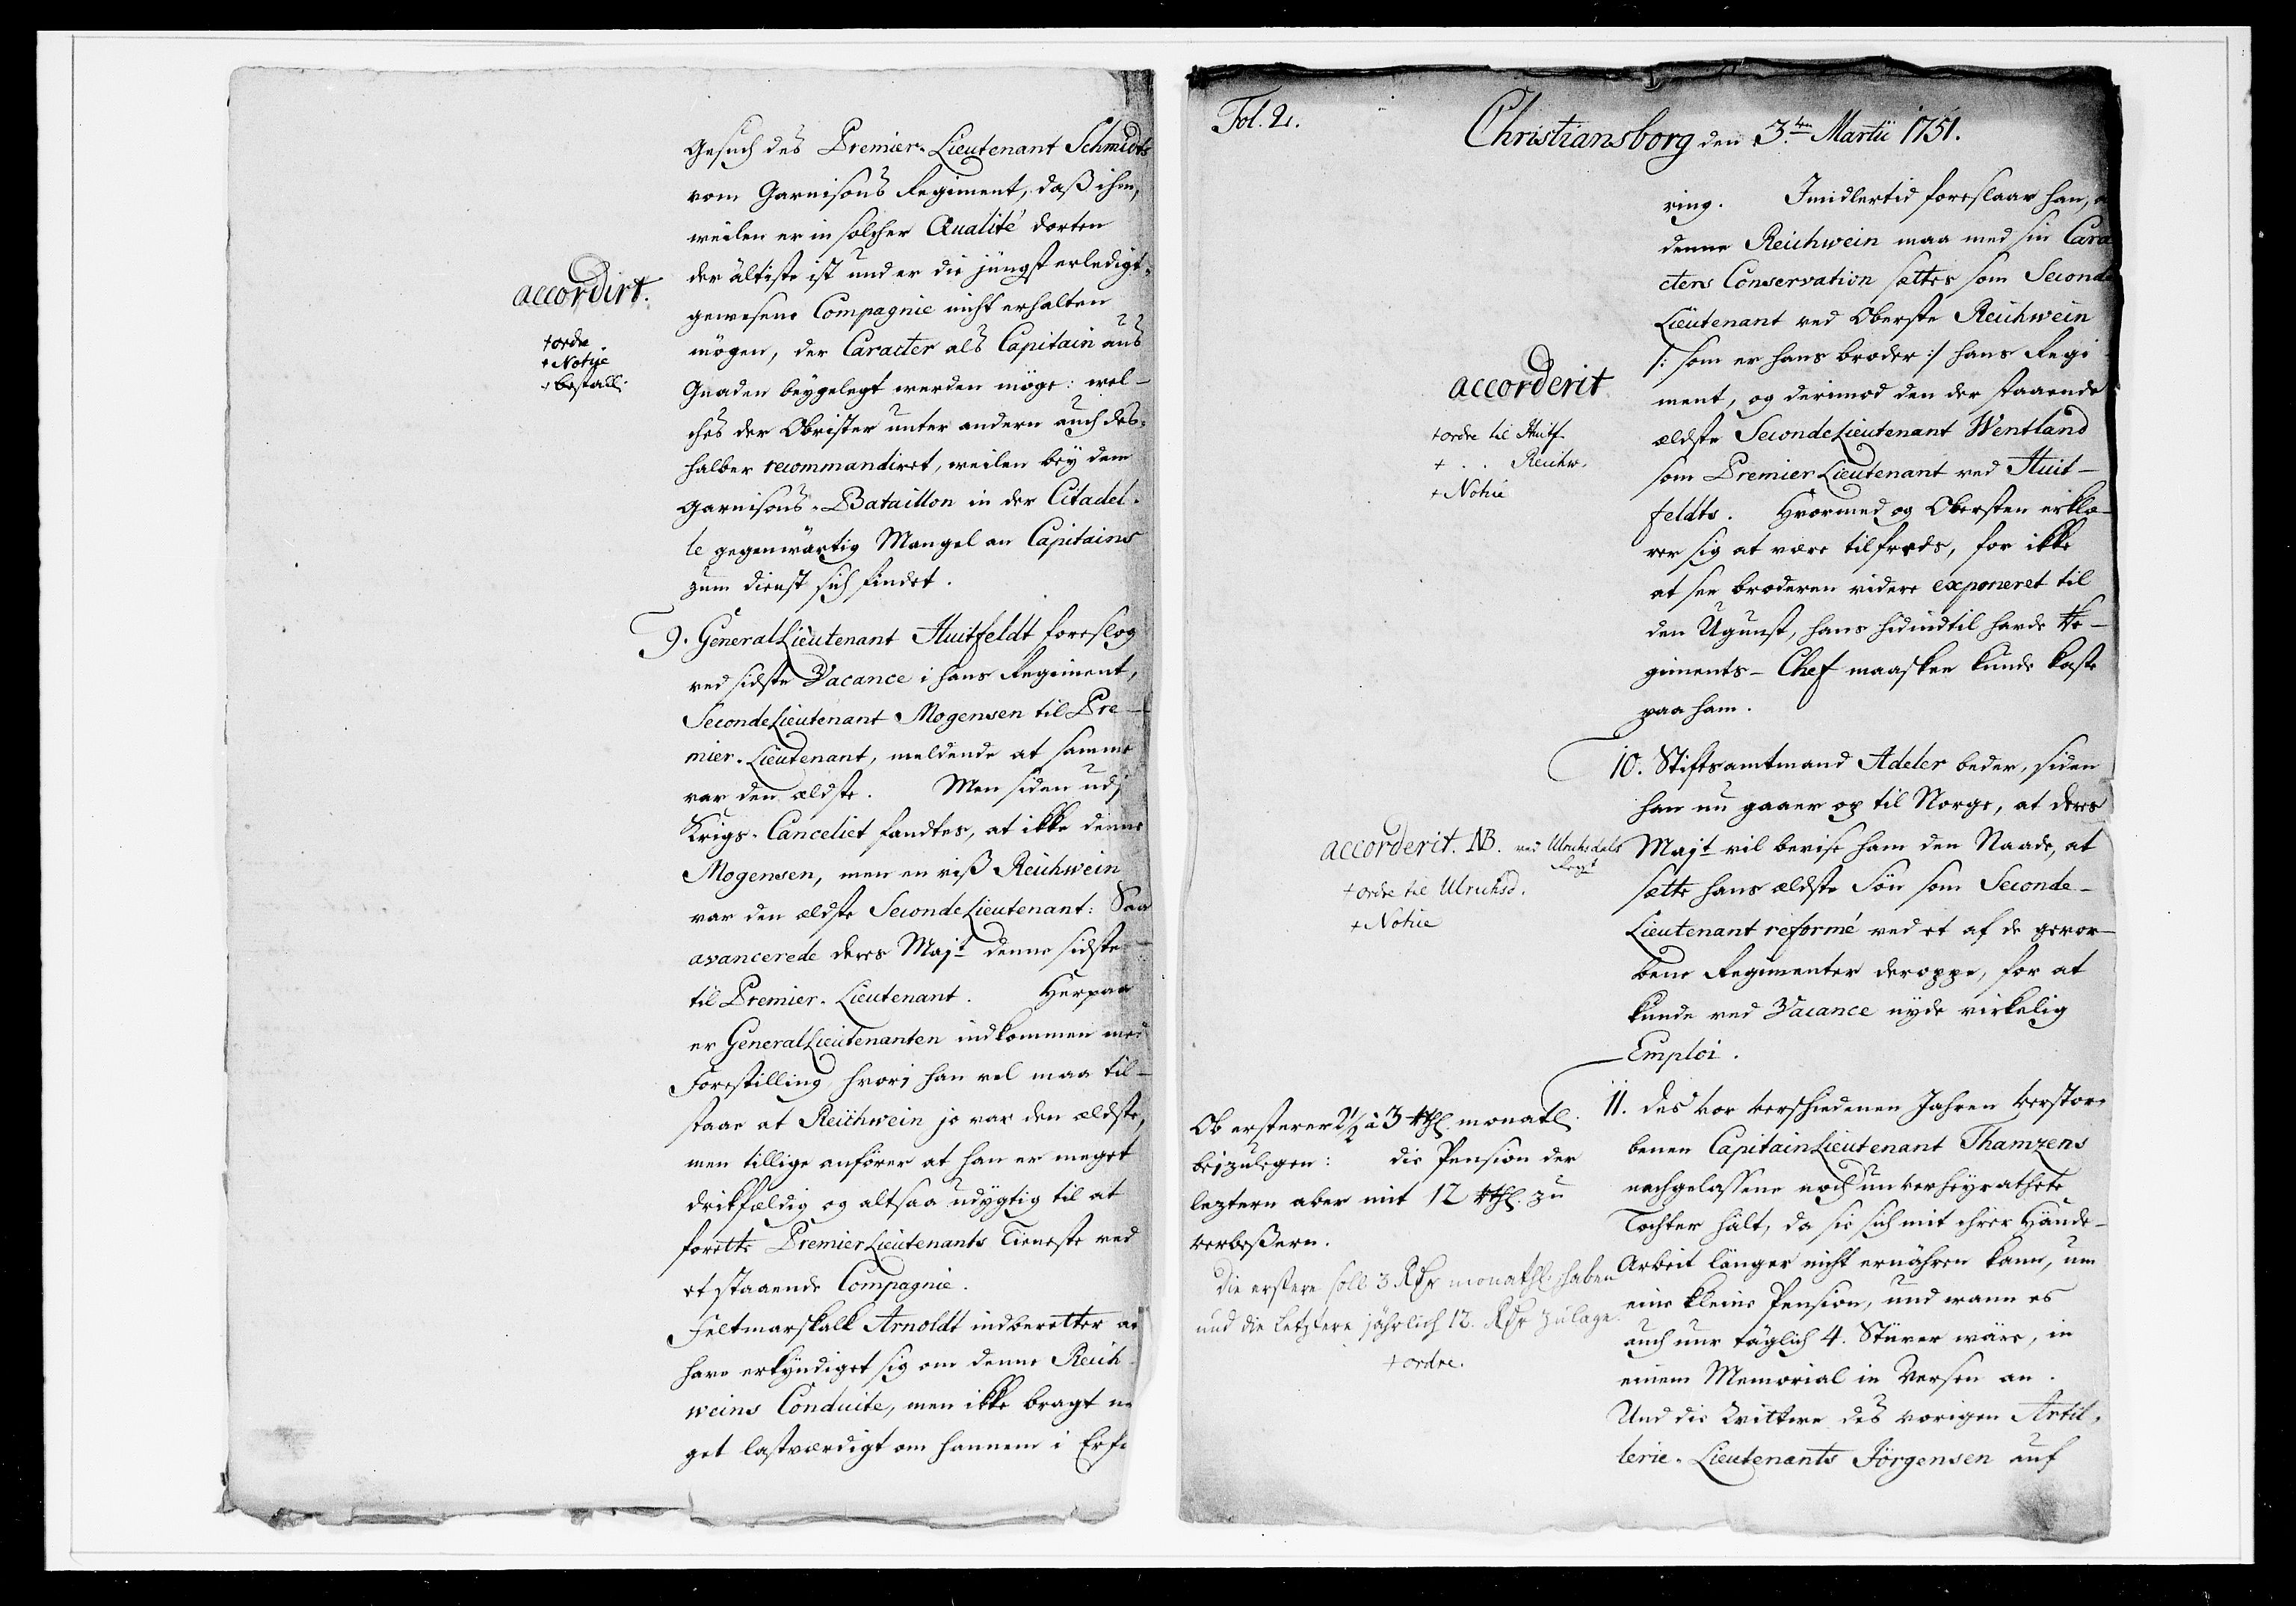 Gesuch des Premier-Lieutenant Schmidts
vom Garnisons Regiment, daß ihm,
weilen er in solcher Qualité dorten
der älteste ist und er die jüngst erledigt-
gewesene Compagnie nicht erhalten
mögen, der Caracter als Capitain aus
Gnaden beygelegt werden möge: wel-
ches der Obrister unter andern auch des-
halber recommandiret, weilen bey dem
Garnisons-Bataillon in der Citadel-
le gegenwärtig Mangel an Capitains
zum dienst sich findet.
accordirt.
+ ordre
+ Notice
+ bestall.
9. GeneralLieutenant Huitfeldt foreslog
ved sidste Vacance i hans Regiment,
SecondeLieutenant Mogensen til Pre-
mier-Lieutenant, meldende at samme
var den ældste. Men siden udj
Krigs-Canceliet fandtes, at ikke denne
Mogensen, men en viß Reichwein
var den ældste SecondeLieutenant: Saa
avancerede deres Majt denne sidste
til Premier-Lieutenant. Herpaa
er GeneralLieutenanten indkommen med
Forestilling, hvorj han vel maa til-
staae at Reichwein jo var den ældste,
men tillige anfører at han er meget
drikfældig og altsaa udygtig til at
forette PremierLieutenants Tieneste ved
et staaende Compagnie.
Feltmarskall Arnoldt indberetter at
have erkyndiget sig om denne Reich-
weins Conduite, men ikke bragt no
get lastværdigt om hannem i Erfa
Fol. 2.
Christiansborg den 3.ten Martii 1751.
ring. Imidlertid foreslaar han, a
denne Reichwein maa med sin Cara
cters Conservation sættes som Seconde
Lieutenant ved Oberste Reichwein
/: som er hans broder :/ hans Regi
ment, og derimod den der staaende
ældste SecondeLieutenant Wentland
som PremierLieutenant ved Huit-
feldts. Hvormed og Obersten erklæ-
rer sig at være tilfreds, for ikke
at see broderen videre exponeret til
den Ugunst, hans hidindtil havde Re-
giments-Chef maaskee kunde kaste
paa ham.
accorderit
+ ordre til Huitf.
+ . . Reichw.
+ Notice
10. Stiftsamtmand Adeler beder, siden
han nu gaaer op til Norge, at deres
Majt vil bevise ham den Naade, at
sætte hans ældste Søn som Seconde-
Lieutenant reformé ved et af de gevor-
bene Regimenter deroppe, for at
kunde ved Vacance nyde virkelig
Emploi.
accorderit. NB. ved Ulrichsdals
Regt
+ ordre til Ulrichsd.
+ Notice
11. Des vor verschiedenen Jahren verstor-
benen CapitainLieutenant Thamzens
nachgelassene noch unverheyrathete
Tochter hält, da sie sich mit ihrer Hände-
Arbeit länger nicht ernähren kann, um
eine kleine Pension, und wann es
auch nur täglich 4. Stüver wäre, in
einem Memorial in Versen an.
Und die Wittwe des vorigen Artil-
lerie-Lieutenants Jörgensen auf
Ob ersterer 2½ à 3 Rthl. monatl.
beizulegen: die Pension der
leztern aber mit 12 Rthl. zu
verbeßern.
Die erstere soll 3 Rthr monathl. haben
und die letztere jährlich 12. Rthr Zulage.
+ ordre.